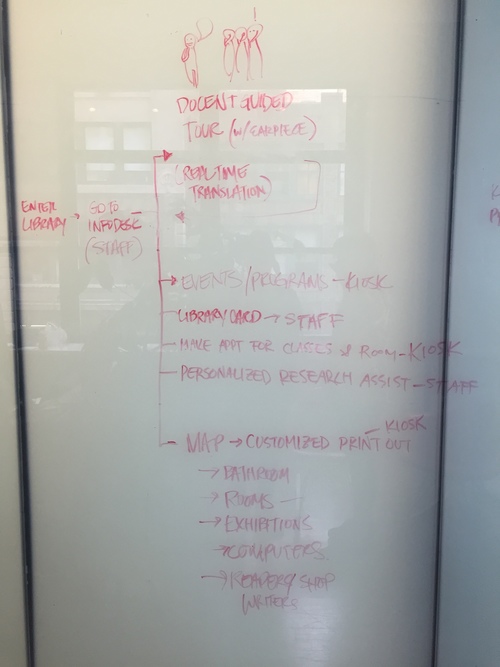 DOCENT GUIDED
TOUR (W/EARPIECE)
(REAL-TIME
TRANSLATION)
ENTER
LIBRARY
GO TO
INFODESC
(STAFF)
EVENTS/PROGRAMS - KIOSK
LIBRARY CARD → STAFF
MAKE APPT FOR CLASSES & ROOM - KIOSK
PERSONALIZED RESEARCH ASSIST - STAFF
KIOSK
MAP → CUSTOMIZED PRINT OUT
→ BATHROOM
→ ROOMS —
→ EXHIBITIONS
→ COMPUTERS
→ READERS/ SHOP
WRITERS